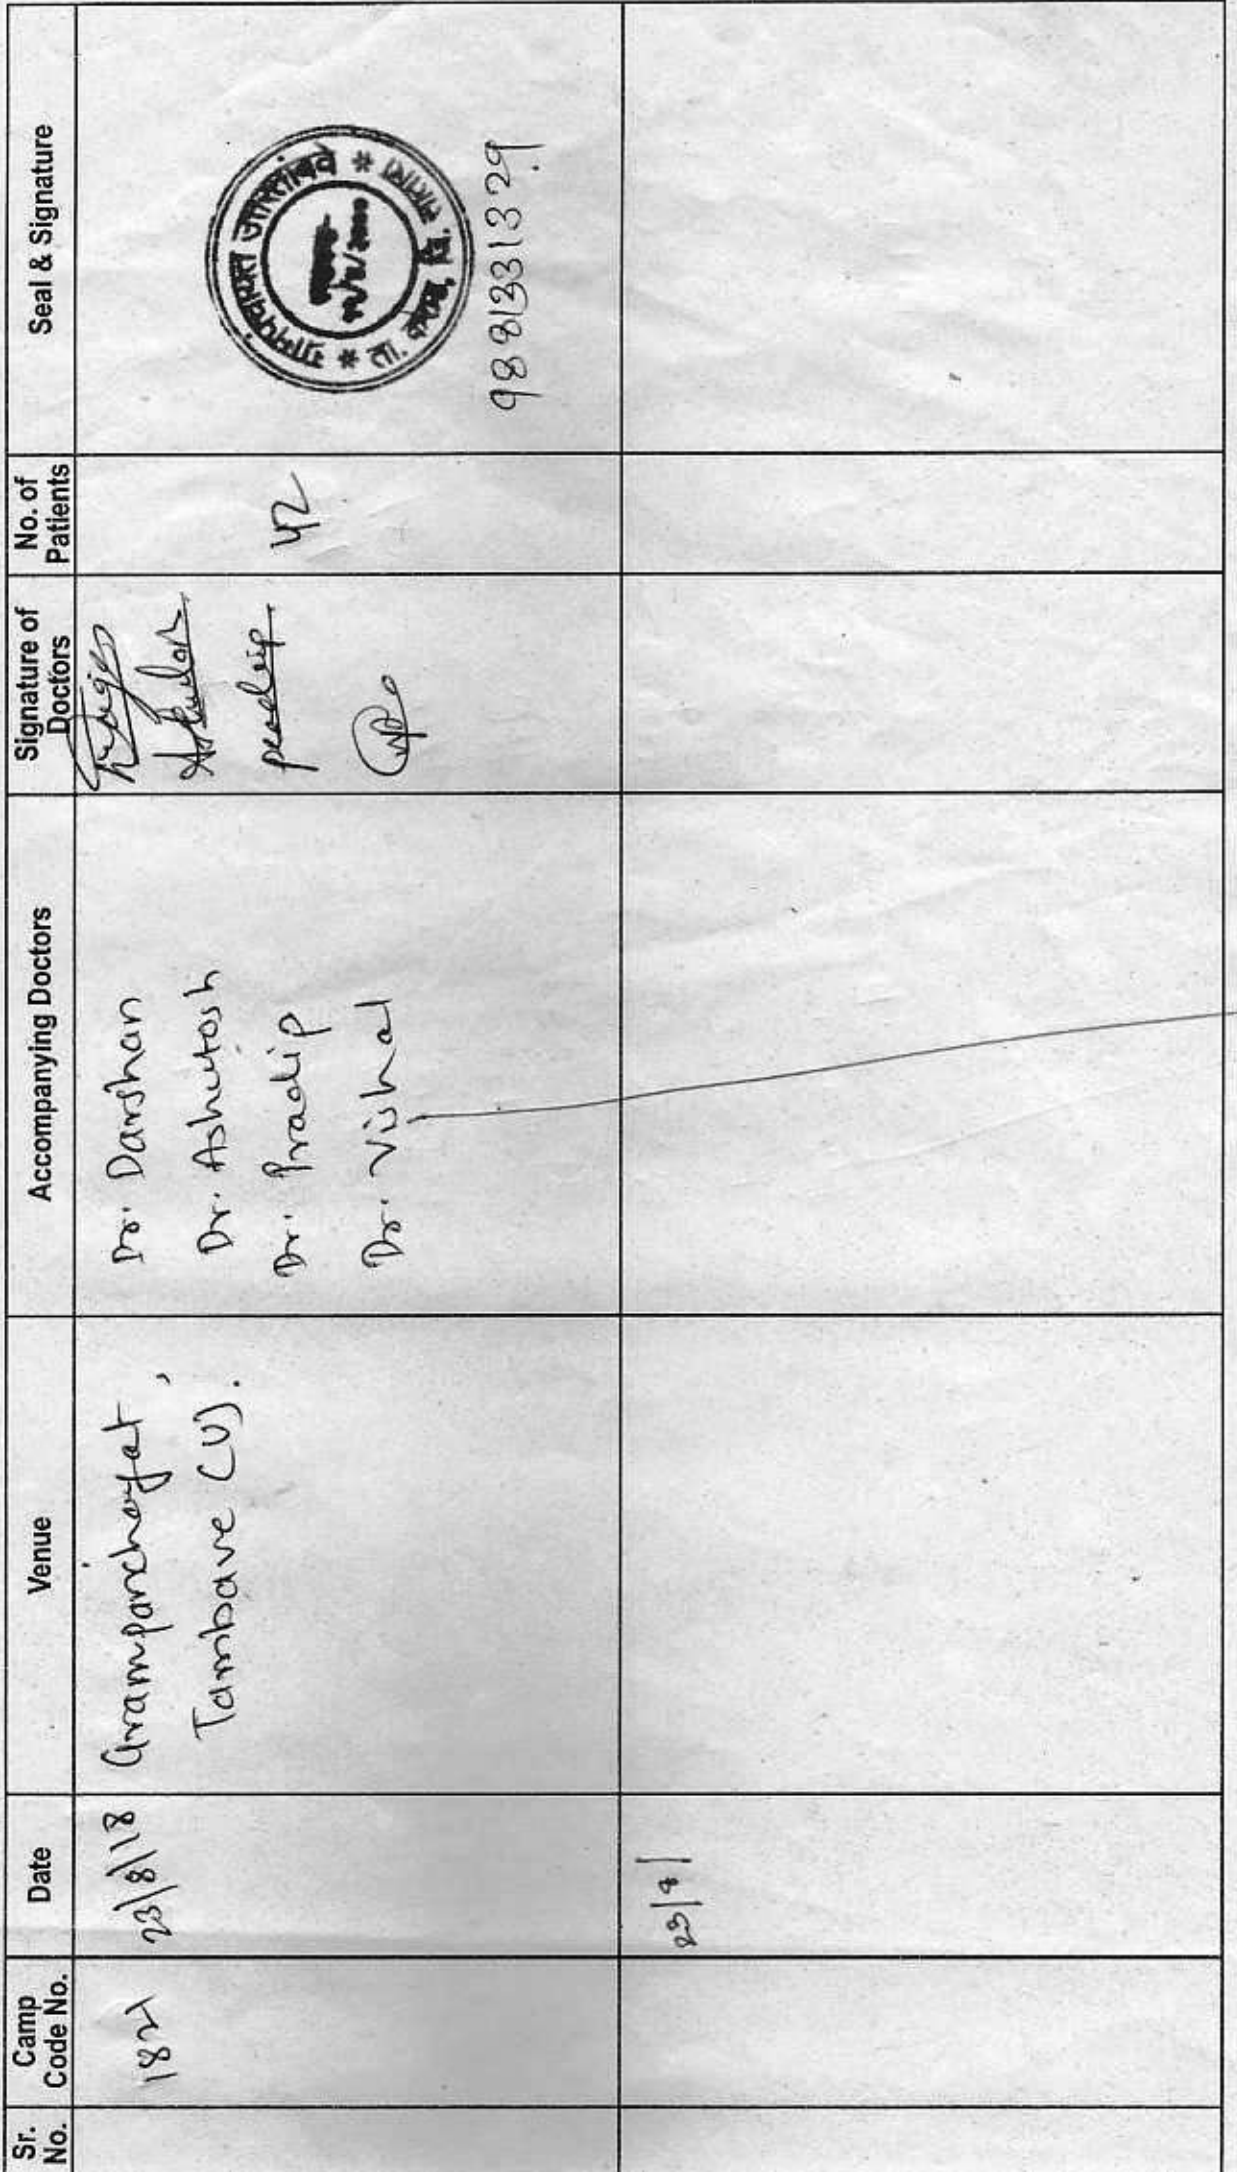 Sr. No.
Camp Code No.
Date
Venue
Accompanying Doctors
Signature of Doctors
No. of Patients
Seal & Signature
1821
23/8/18
Grampanchayat,
Tambave (U).
Dr. Darshan
Dr. Ashutosh
Dr. Pradip
Dr. Vishal
Ashutosh
pradip
42
ग्रामपंचायत उत्तरतांबवे
ता. कराड, जि. सातारा
9881331329
23/8/